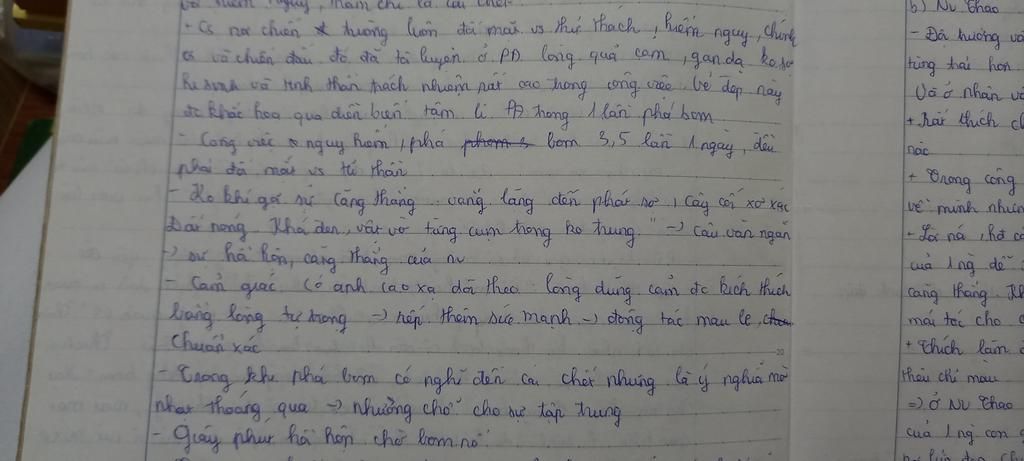 và hiểm nguy, thậm chí là cái chết
+ Cs nơi chiến trường luôn đối mặt vs thử thách, hiểm nguy, chính
cs và chiến đấu đó đã tôi luyện ở PĐ lòng quả cảm, gan dạ ko sợ
hi sinh và tinh thần trách nhiệm rất cao trong công việc. Vẻ đẹp này
đc khắc họa qua diễn biến tâm lí PĐ trong 1 lần phá bom
- Công việc nguy hiểm, phá bom 3,5 lần 1 ngày, đều
phải đối mặt vs tử thần
- Ko khí gợi sự căng thẳng vắng lặng đến phát sợ, cây cối xơ xác
Đất nóng. Khói đen, vật vờ từng cụm trong ko trung." -> câu văn ngắn
-> sự hồi hộp, căng thẳng của nv
- Cảm giác có anh cao xạ dõi theo lòng dũng cảm đc kích thích
bằng lòng tự trọng -> tiếp thêm sức mạnh -> động tác mau lẹ,
chuẩn xác
- Trong khi phá bom có nghĩ đến cái chết nhưng là ý nghĩa mờ
nhạt thoáng qua -> nhường chỗ cho sự tập trung
- Giây phút hồi hộp chờ bom nổ
b) NV Thao
- Đã hướng
từng trải hơn
Và ở nhân vậ
+ Rất thích ch
nác
+ Trong công
về mình nhưn
- Lời ns, hđ c
của 1 ng dễ
căng thẳng. K
mái tóc cho
+ Thích làm
thêu chỉ màu
=> Ở NV Thao
của 1 ng con g